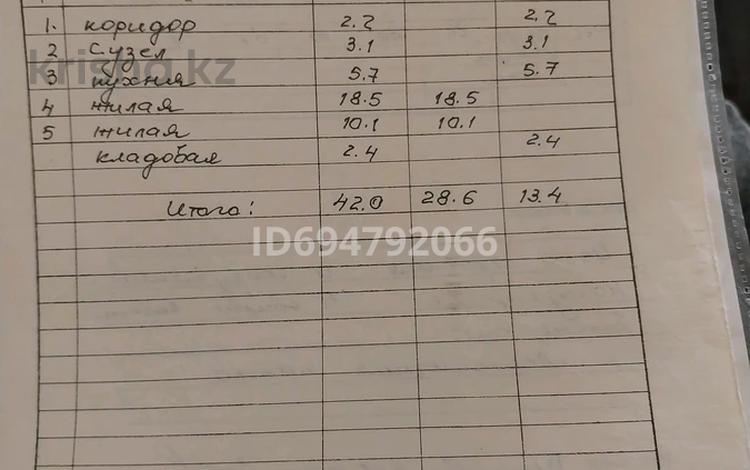 1. коридор 2.2 2.2
2 с.узел 3.1 3.1
3 кухня 5.7 5.7
4 жилая 18.5 18.5
5 жилая 10.1 10.1
кладовая 2.4 2.4
Итого: 42.0 28.6 13.4
krisha.kz
ID694792066